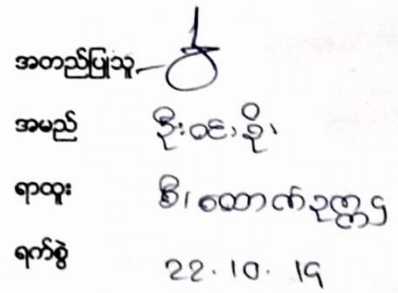 အတည်ပြုသူ
အမည် ဦး
ရာထူး စီ/ထောက်ဥက္ကဌ
ရက်စွဲ 22.10.19